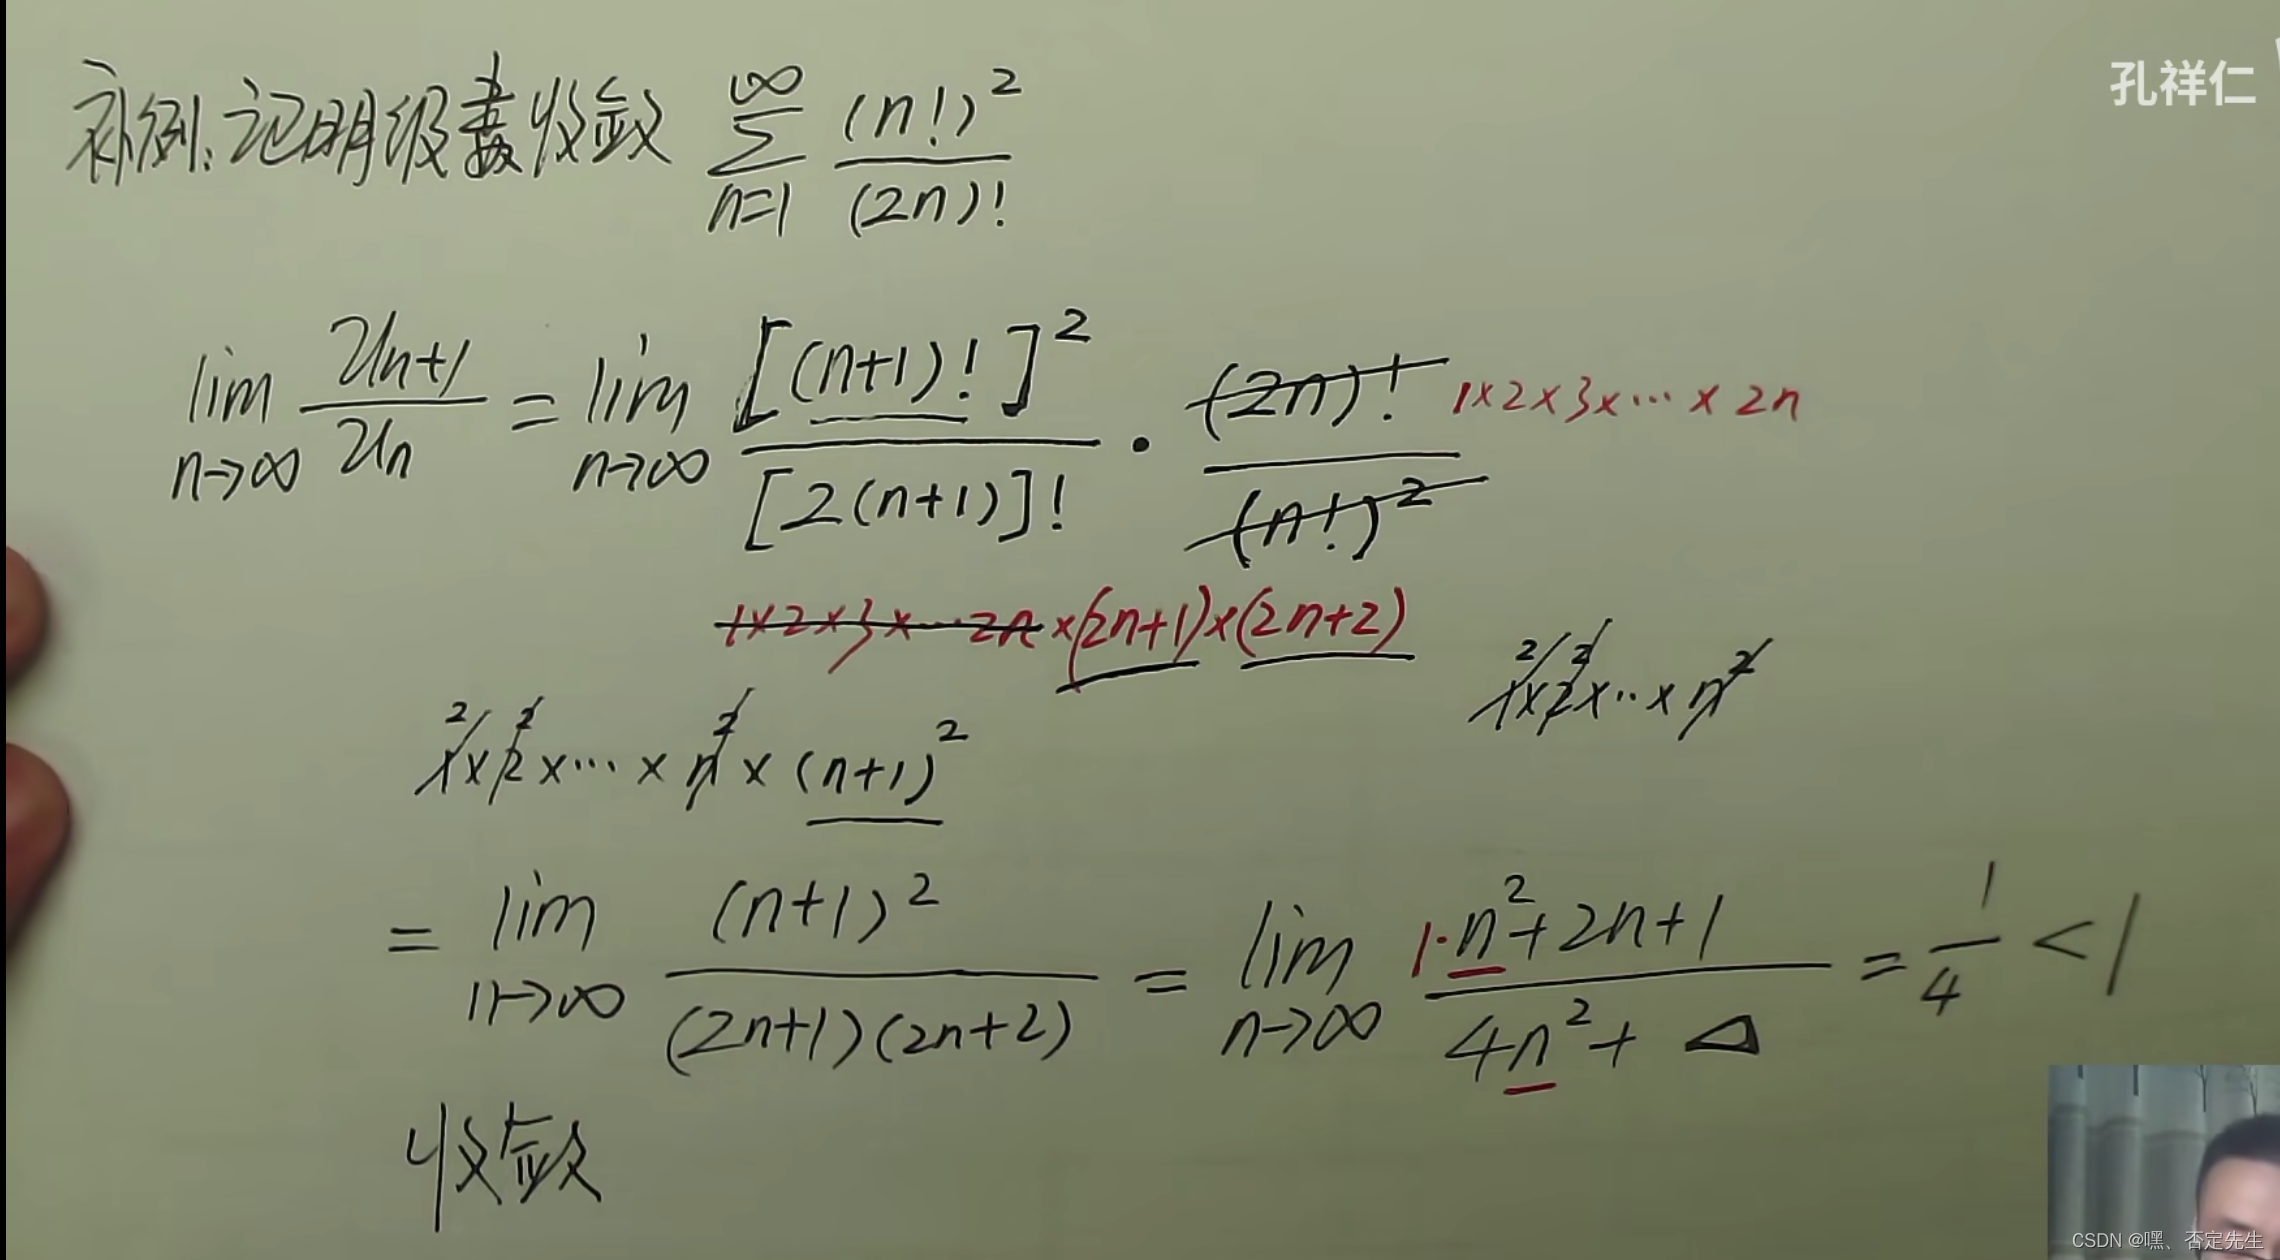 补例:证明级数收敛 \sum_{n=1}^{\infty} \frac{(n!)^2}{(2n)!}
孔祥仁
\lim_{n→∞} \frac{u_{n+1}}{u_n} = \lim_{n→∞} \frac{[(n+1)!]^2}{[2(n+1)]!} · \frac{(2n)!}{(n!)^2} 1×2×3×…×2n
1×2×3×…2n×(2n+1)×(2n+2)
1^2×2^2×‥×n^2
1^2×2^2×…×n^2×(n+1)^2
= \lim_{n→∞} \frac{(n+1)^2}{(2n+1)(2n+2)} = \lim_{n→∞} \frac{1·n^2+2n+1}{4n^2+△} = \frac{1}{4} < 1
收敛
CSDN @嘿、否定先生